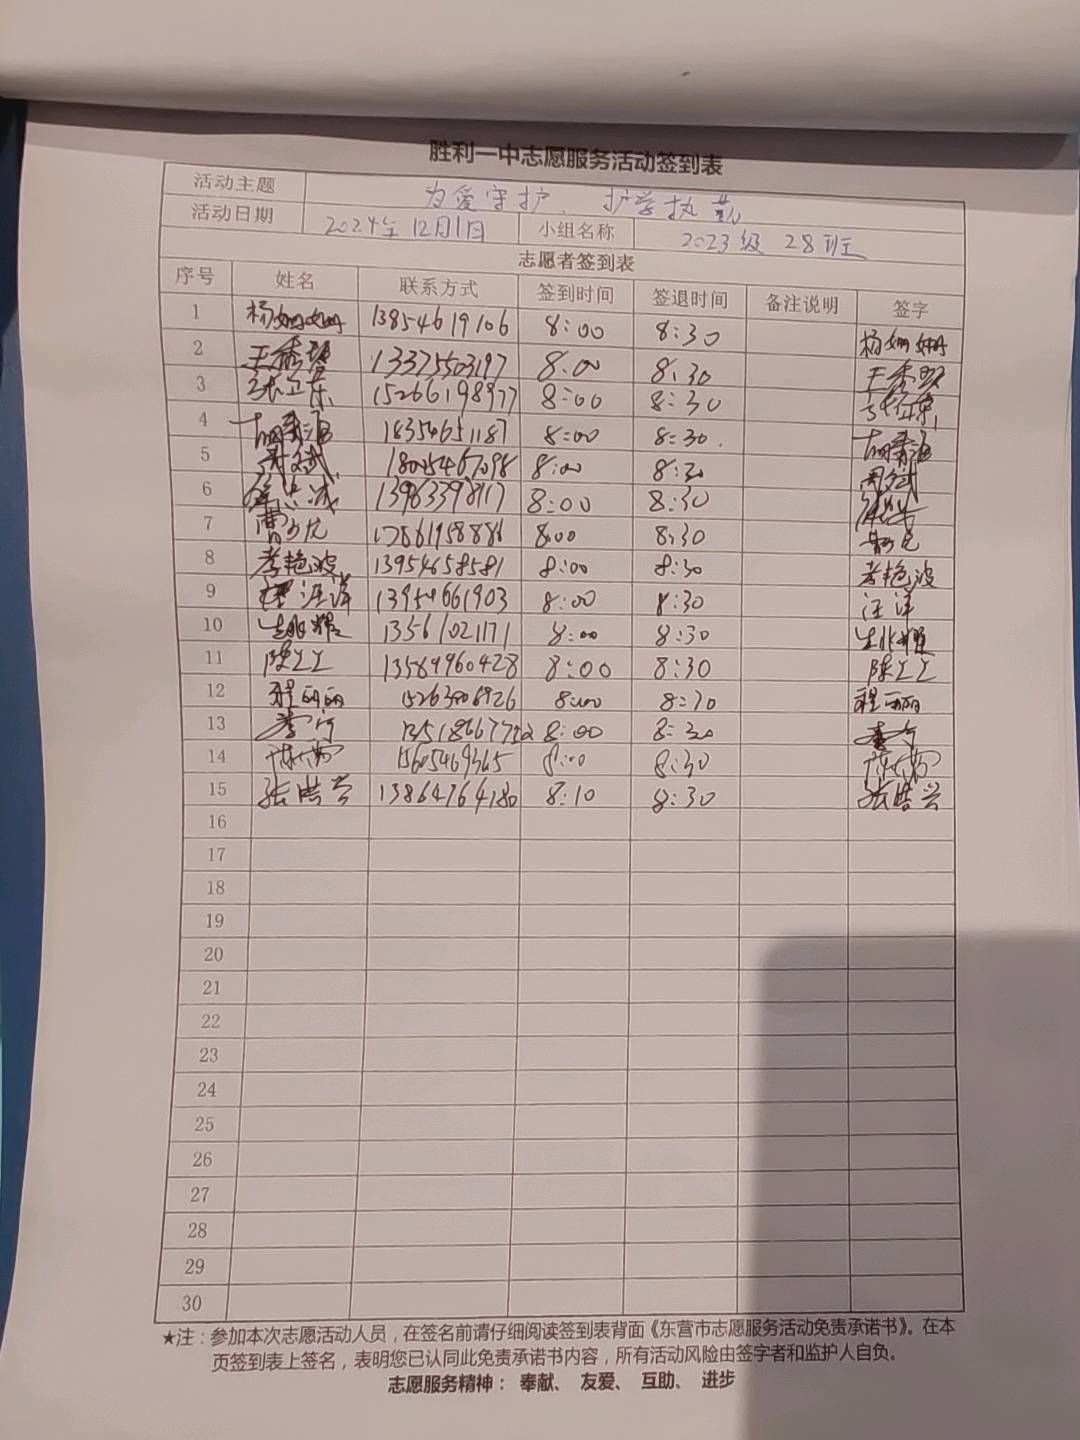 胜利一中志愿服务活动签到表
活动主题 为爱守护、护学执勤
活动日期 2024年12月1日 小组名称 2023级 28班
志愿者签到表
序号 姓名 联系方式 签到时间 签退时间 备注说明 签字
1 杨姗姗 13854619106 8:00 8:30 杨姗姗
2 13375503197 8:00 8:30
3 张卫东 15266198977 8:00 8:30 张卫东
4 18354651187 8:00 8:30
5 周文斌 18005467098 8:00 8:30 周文斌
6 13963398117 8:00 8:30
7 17861958886 8:00 8:30
8 李艳波 13954658581 8:00 8:30 李艳波
9 汪洋 13954661903 8:00 8:30 汪洋
10 13561021171 8:00 8:30
11 陈 13589960428 8:00 8:30 陈
12 程丽丽 8:00 8:30 程丽丽
13 8:00 8:30
14 15605469365 8:00 8:30
15 张 13864764180 8:10 8:30 张
16
17
18
19
20
21
22
23
24
25
26
27
28
29
30
★注：参加本次志愿活动人员，在签名前请仔细阅读签到表背面《东营市志愿服务活动免责承诺书》。在本
页签到表上签名，表明您已认同此免责承诺书内容，所有活动风险由签字者和监护人自负。
志愿服务精神： 奉献、 友爱、 互助、 进步